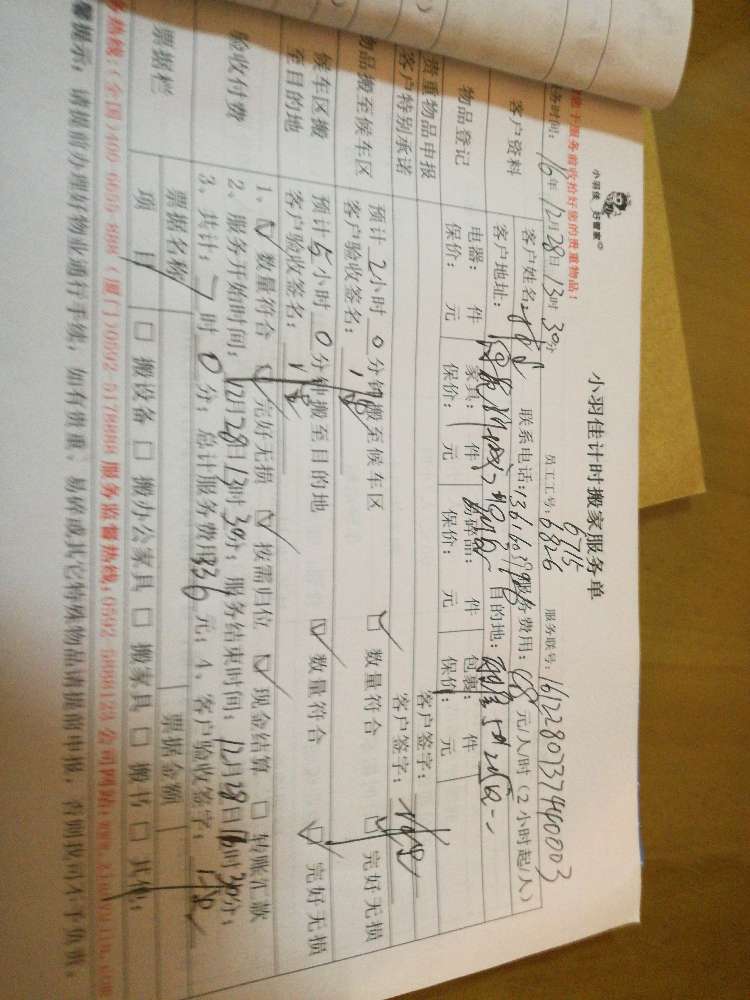 小羽佳 好管家
小羽佳计时搬家服务单
于服务前收拾好您的贵重物品!
员工工号: 6715
6826
服务联号: 161228073746003
务时间: 16年12月28日13时30分
客户资料
客户姓名:
联系电话:
服务费用: 元/人/时(2小时起/人)
客户地址:
目的地:
物品登记
电器: 件 家具: 件 易碎品: 件 包裹: 件
保价: 元 保价: 元 保价: 元 保价: 元
贵重物品申报
客户签字:
客户特别承诺
客户签字:
物品搬至候车区
预计2小时0分钟搬至候车区
数量符合 完好无损
客户验收签名:
候车区搬
至目的地
预计5小时0分钟搬至目的地
数量符合 完好无损
客户验收签名:
验收付费
1、数量符合 完好无损 按需归位 现金结算 转账汇款
2、服务开始时间:12月28日13时30分;服务结束时间:12月28日16时30分;
3、共计: 时0分;总计服务费用336元;4、客户验收签字:
票据栏
票据名称
票据金额
项目
搬设备 搬办公家具 搬家具 搬书 其他:
热线:(全国)400-6655-888 (厦门)0592-5178888 服务监督热线:0592-5888123 公司网站:
馨提示:请提前办理好物业通行手续,如有贵重、易碎或其它特殊物品请提前申报,否则我司不予负责。